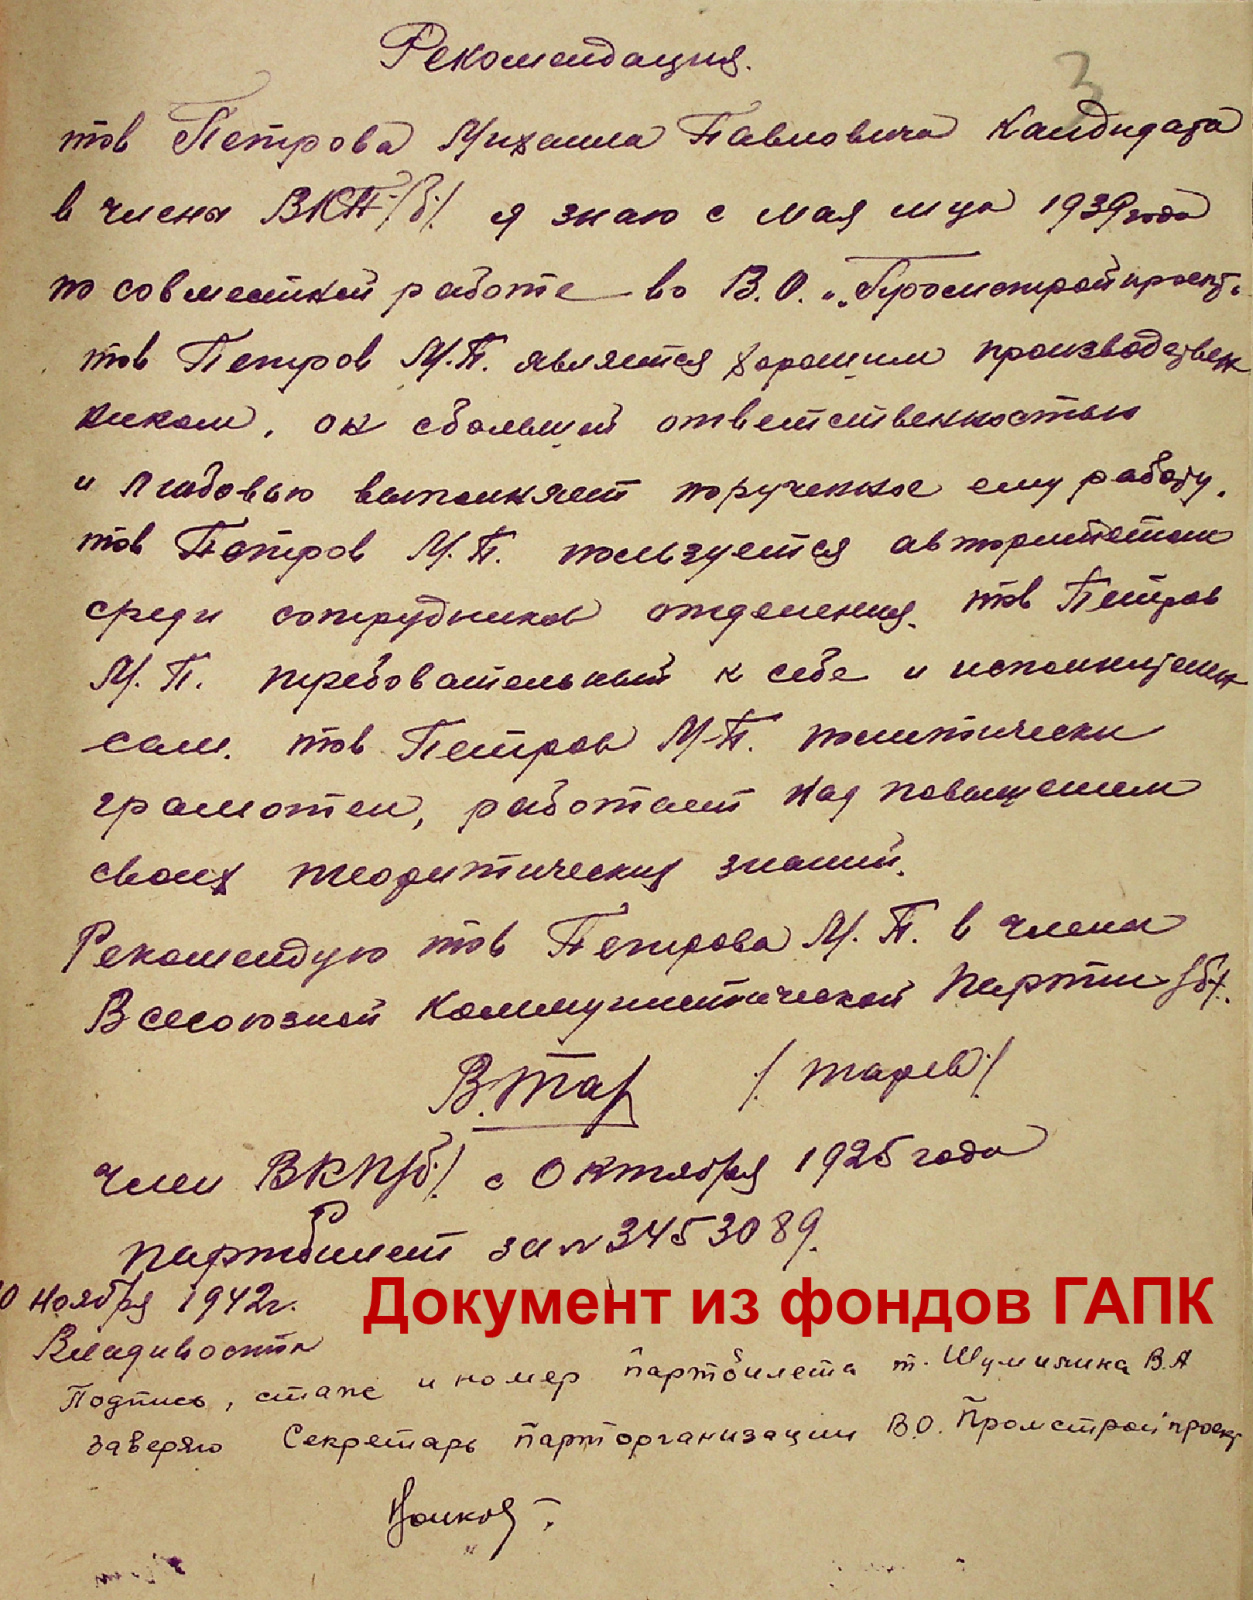 Рекомендация.
3
тов Петрова Михаила Павловича Кандидата
в члены ВКП/б/. я знаю с мая м-ца 1939 года
по совместной работе во В.О. „Промстройпроект"
тов Петров М.П. является хорошим производствен
ником, он с большой ответственностью
и любовью выполняет порученное ему работу.
тов Петров М.П. пользуется авторитетом
среди сотрудников отделения. тов Петров
М.П. требовательный к себе и исполнителен
сам. тов Петров М.П. политически
грамотен, работает над повышением
своих теоритических знаний.
Рекомендую тов Петрова М.П. в члены
Всесоюзной Коммунистической Партии /б/.
В. Тар /Тарев/
член ВКП/б/. с Октября 1925 года
партбилет за № 3453089.
10 ноября 1942г.
Документ из фондов ГАПК
Владивосток
Подпись, стаж и номер партбилета т. В.А
заверяю Секретарь парторганизации В.О. Промстройпроект